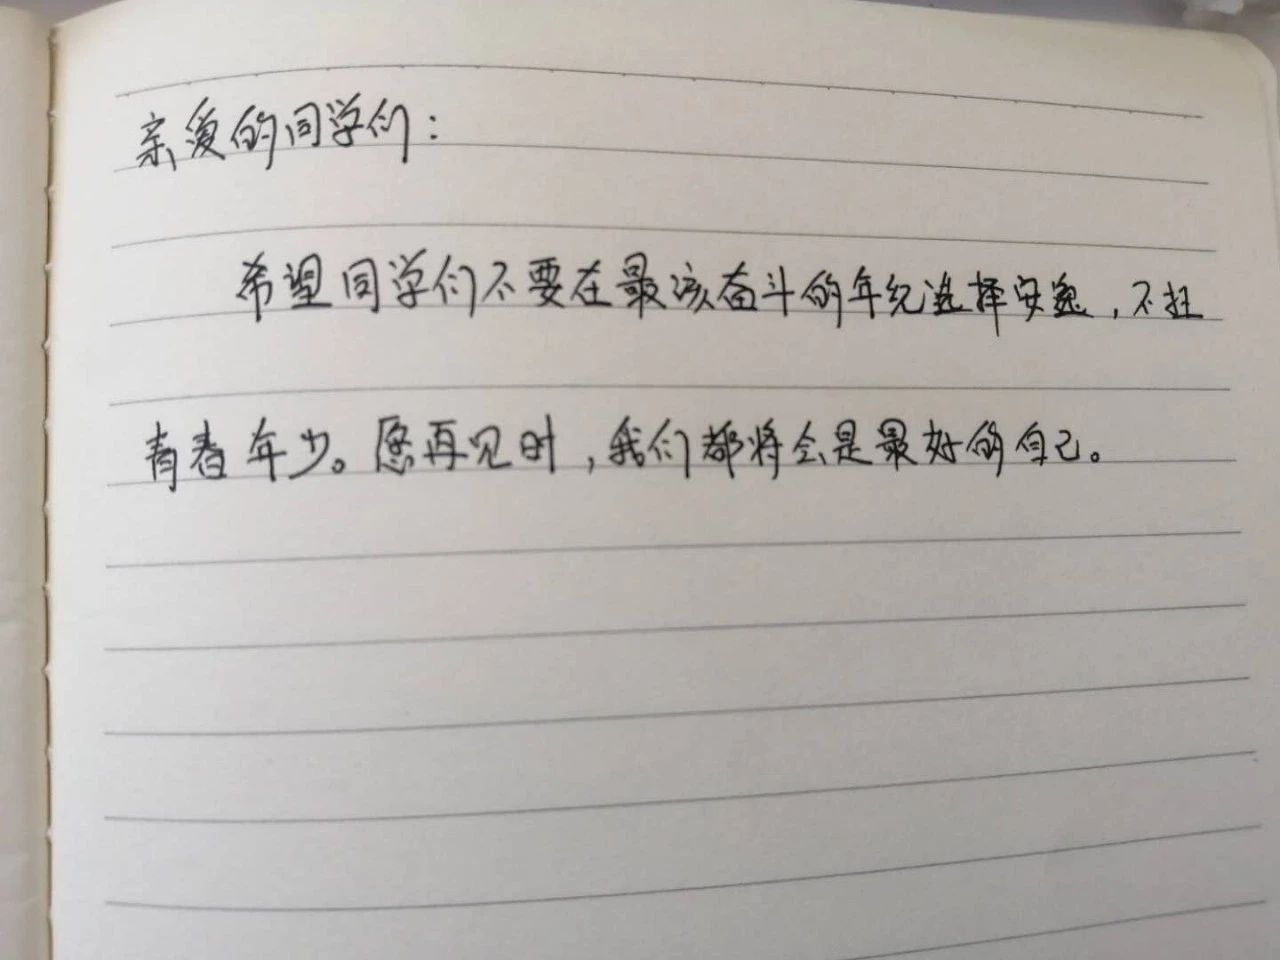 亲爱的同学们：
希望同学们不要在最该奋斗的年纪选择安逸，不枉
青春年少。愿再见时，我们都将会是最好的自己。